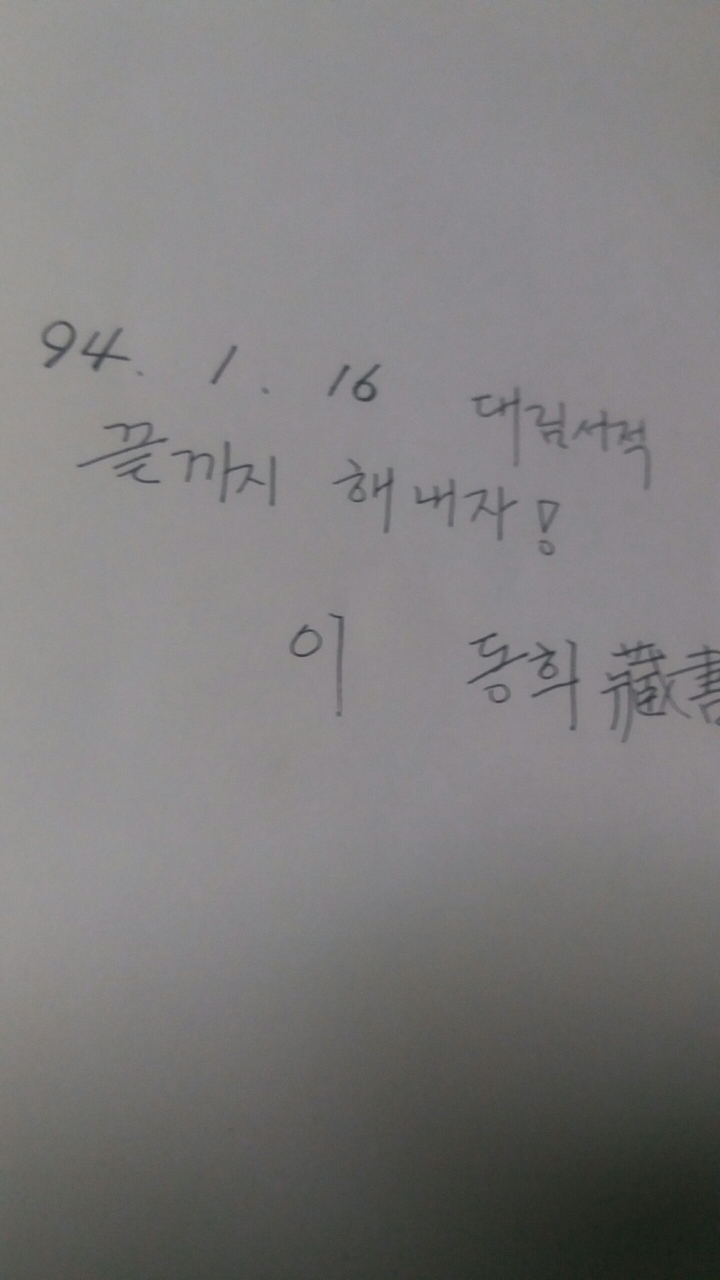 94. 1. 16 대림서적
끝까지 해내자!
이 동희 藏書